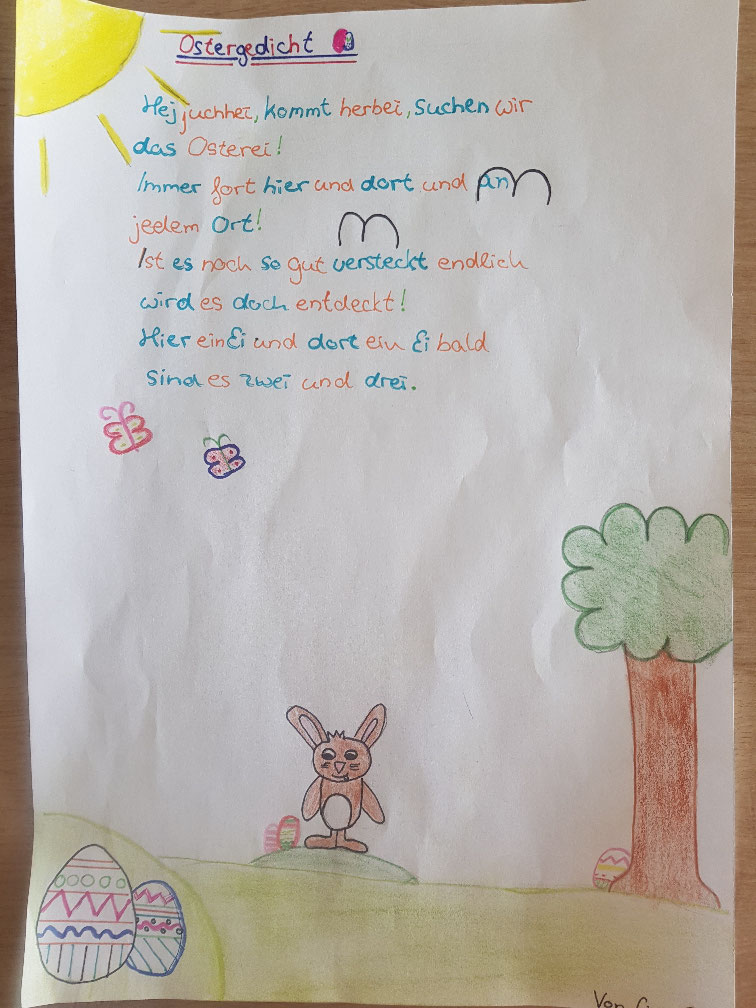 Ostergedicht
Hej juchhei, kommt herbei, suchen wir
das Osterei!
Immer fort hier und dort und an
jedem Ort!
Ist es noch so gut versteckt endlich
wird es doch entdeckt!
Hier ein Ei und dort ein Ei bald
sind es zwei und drei.
Von